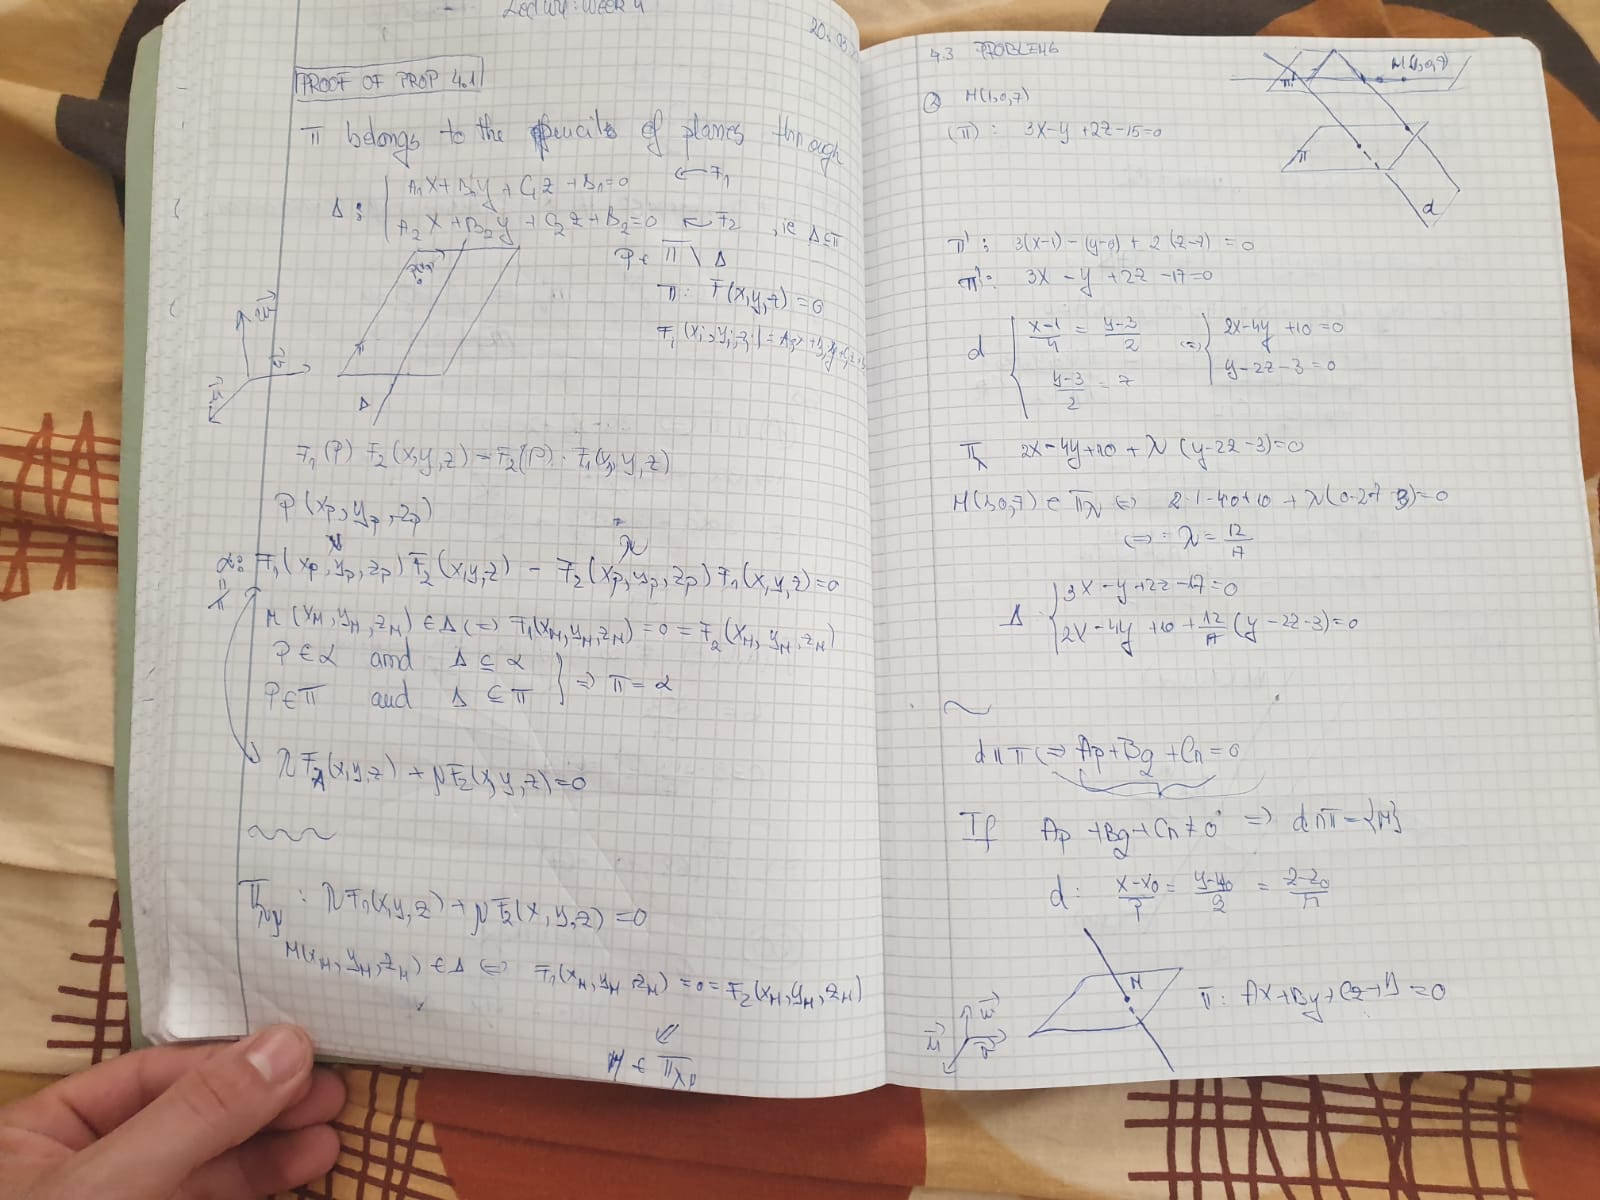 Lecture: Week 4
20.03
PROOF OF PROP 4.1
π belongs to the pencils of planes through
Δ: { A₁X + B₁y + C₁z + D₁ = 0 ← F₁
A₂X + B₂y + C₂z + D₂ = 0 ← F₂ , ie Δ⊆π
P ∈ π \ Δ
π: F(x,y,z) = 0
π
Δ
F₁(P) F₂(x,y,z) - F₂(P) · F₁(x,y,z)
P(xp, yp, zp)
α: F₁(xp, yp, zp) F₂(x,y,z) - F₂(xp, yp, zp) F₁(x,y,z) = 0
M(xM, yM, zM) ∈ Δ ⇔ F₁(xM, yM, zM) = 0 = F₂(xM, yM, zM)
P ∈ α and Δ ⊆ α
P ∈ π and Δ ⊆ π } ⇒ π = α
λF₁(x,y,z) + μF₂(x,y,z) = 0
πλμ : λF₁(x,y,z) + μF₂(x,y,z) = 0
M(xM, yM, zM) ∈ Δ ⇔ F₁(xM, yM, zM) = 0 = F₂(xM, yM, zM)
⇓
M ∈ πλμ
4.3 PROBLEMS
M(1,0,7)
② M(1,0,7)
(π): 3x - y + 2z - 15 = 0
π'
π
d
π': 3(x-1) - (y-0) + 2(z-7) = 0
π': 3x - y + 2z - 17 = 0
d { (x-1)/4 = (y-3)/2 ⇔ { 2x - 4y + 10 = 0
(y-3)/2 = z y - 2z - 3 = 0
πλ 2x - 4y + 10 + λ(y - 2z - 3) = 0
M(1,0,7) ∈ πλ ⇔ 2·1 - 4·0 + 10 + λ(0 - 2·7 - 3) = 0
⇔ λ = 12/17
Δ { 3x - y + 2z - 17 = 0
2x - 4y + 10 + 12/17 (y - 2z - 3) = 0
d ∥ π ⇔ Ap + Bq + Cr = 0
If Ap + Bq + Cr ≠ 0 ⇒ d ∩ π = {M}
d: (x-x₀)/p = (y-y₀)/q = (z-z₀)/r
M
π: Ax + By + Cz + D = 0